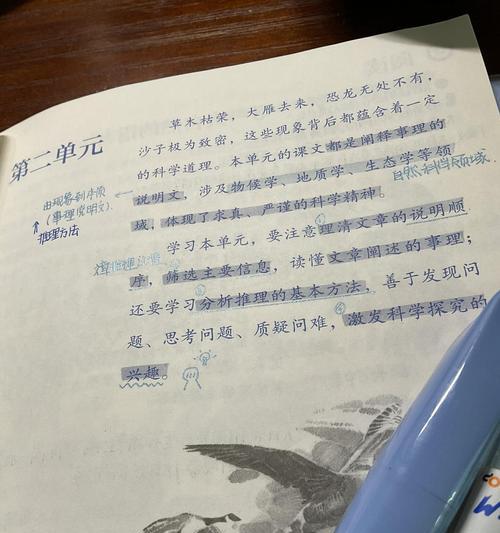 第二单元
草木枯荣，大雁去来，恐龙无处不有，
沙子极为致密，这些现象背后都蕴含着一定
的科学道理。本单元的课文都是阐释事理的
说明文，涉及物候学、地质学、生态学等领
域，体现了求真、严谨的科学精神。
自然科学领域.
（事理说明文）.
推理方法
①
学习本单元，要注意理清文章的说明顺
序，筛选主要信息，读懂文章阐述的事理；
还要学习分析推理的基本方法，善于发现问
题、思考问题、质疑问难，激发科学探究的
兴趣。